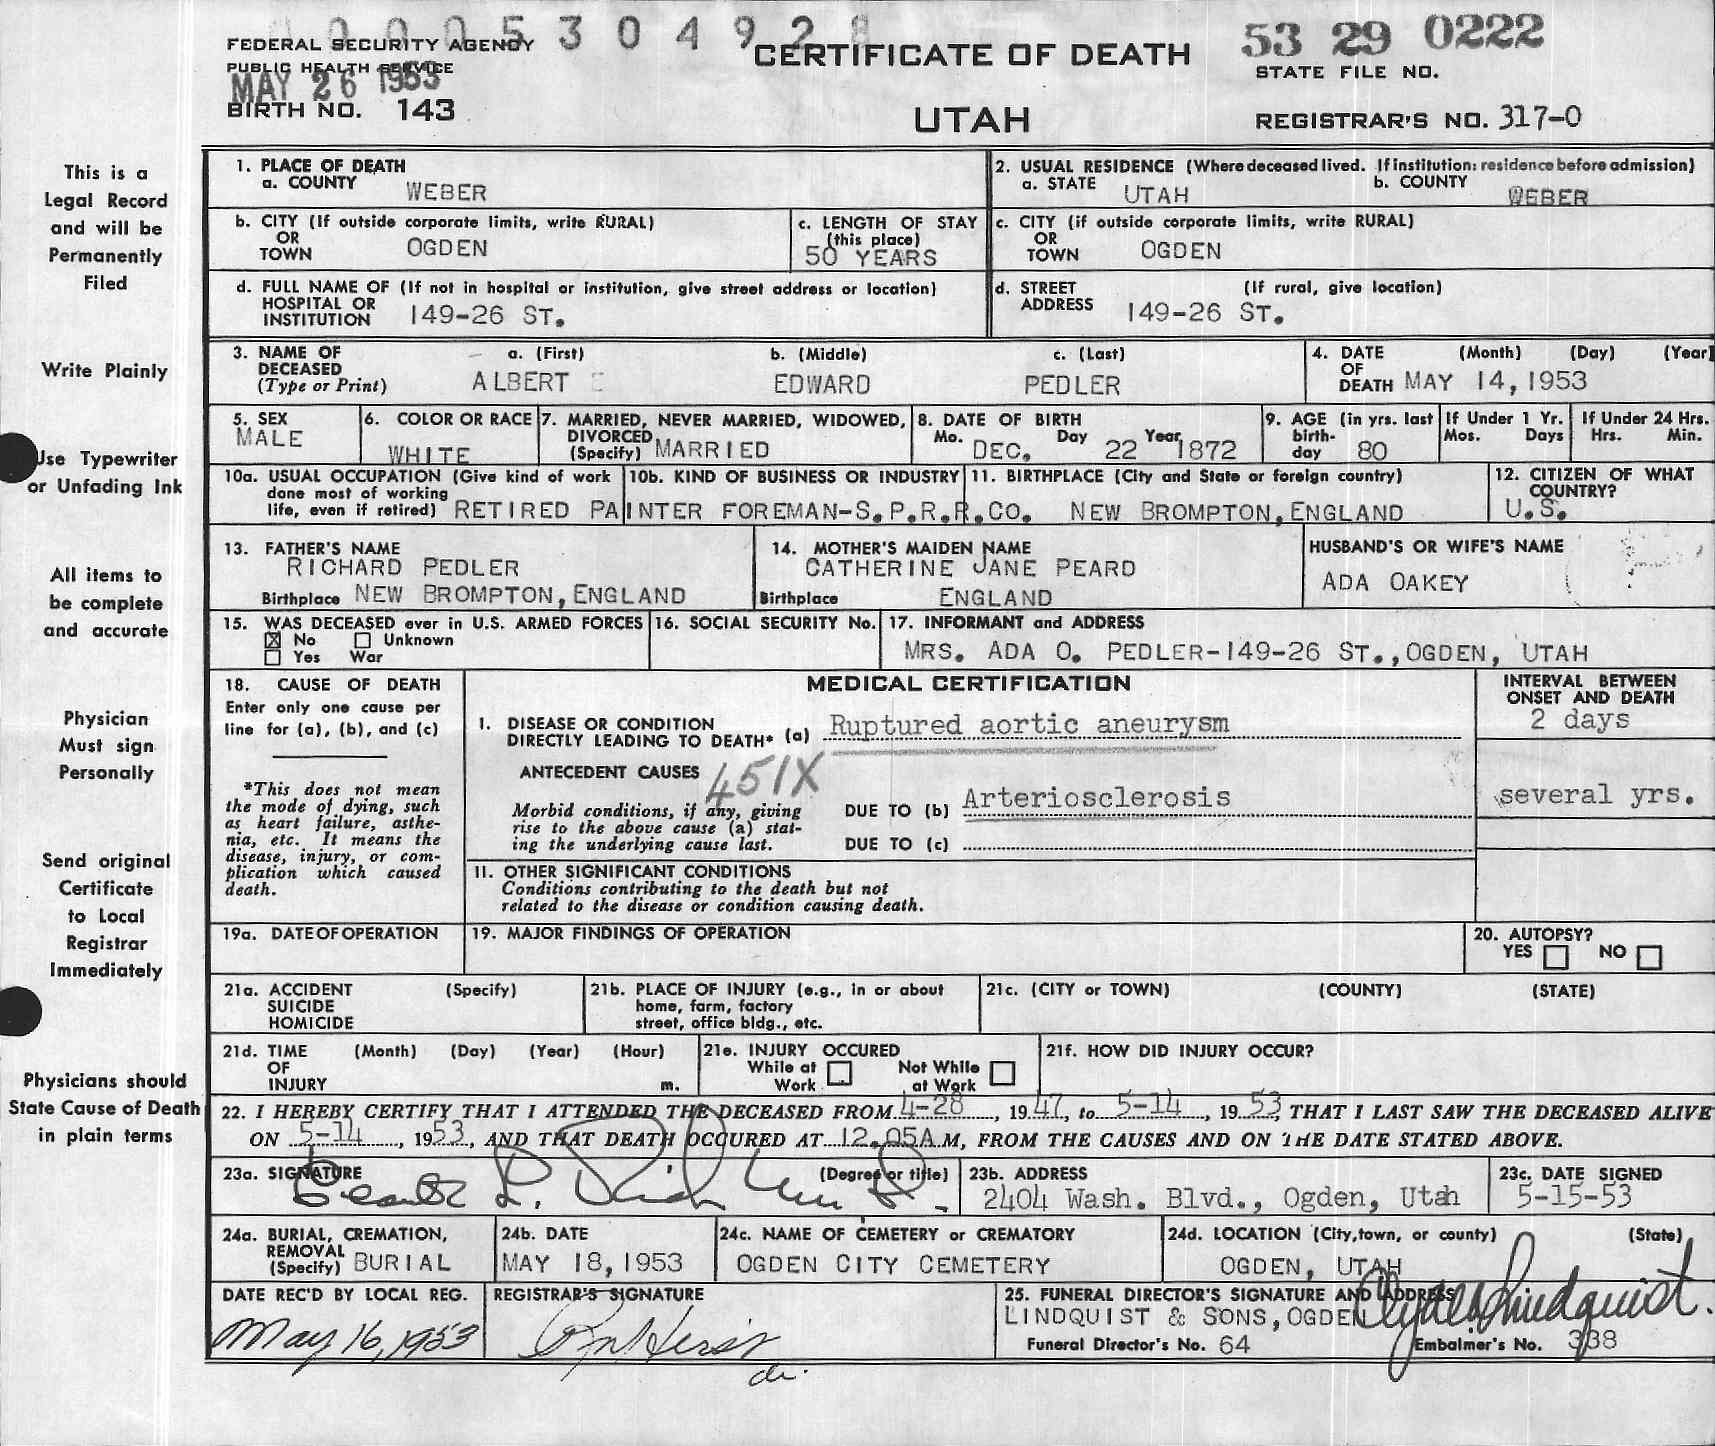 0005304928
FEDERAL SECURITY AGENCY
PUBLIC HEALTH SERVICE
MAY 26 1953
BIRTH NO. 143
CERTIFICATE OF DEATH
UTAH
53 29 0222
STATE FILE NO.
REGISTRAR'S NO. 317-0
This is a
Legal Record
and will be
Permanently
Filed
Write Plainly
Use Typewriter
or Unfading Ink
All items to
be complete
and accurate
Physician
Must sign
Personally
Send original
Certificate
to Local
Registrar
Immediately
Physicians should
State Cause of Death
in plain terms
1. PLACE OF DEATH
a. COUNTY WEBER
2. USUAL RESIDENCE (Where deceased lived. If institution: residence before admission)
a. STATE UTAH b. COUNTY WEBER
b. CITY (If outside corporate limits, write RURAL)
OR
TOWN OGDEN
c. LENGTH OF STAY
(this place)
50 YEARS
c. CITY (if outside corporate limits, write RURAL)
OR
TOWN OGDEN
d. FULL NAME OF (If not in hospital or institution, give street address or location)
HOSPITAL OR
INSTITUTION 149-26 ST.
d. STREET (If rural, give location)
ADDRESS 149-26 ST.
3. NAME OF DECEASED (Type or Print)
a. (First) b. (Middle) c. (Last)
ALBERT EDWARD PEDLER
4. DATE (Month) (Day) (Year)
OF
DEATH MAY 14, 1953
5. SEX
MALE
6. COLOR OR RACE
WHITE
7. MARRIED, NEVER MARRIED, WIDOWED,
DIVORCED
(Specify) MARRIED
8. DATE OF BIRTH
Mo. DEC. Day 22 Year 1872
9. AGE (in yrs. last
birth-
day 80
If Under 1 Yr.
Mos. Days
If Under 24 Hrs.
Hrs. Min.
10a. USUAL OCCUPATION (Give kind of work
done most of working
life, even if retired) RETIRED PAINTER FOREMAN-S.P.R.R.CO.
10b. KIND OF BUSINESS OR INDUSTRY
11. BIRTHPLACE (City and State or foreign country)
NEW BROMPTON, ENGLAND
12. CITIZEN OF WHAT
COUNTRY?
U.S.
13. FATHER'S NAME
RICHARD PEDLER
Birthplace NEW BROMPTON, ENGLAND
14. MOTHER'S MAIDEN NAME
CATHERINE JANE PEARD
Birthplace ENGLAND
HUSBAND'S OR WIFE'S NAME
ADA OAKEY
15. WAS DECEASED ever in U.S. ARMED FORCES
No Unknown
Yes War
16. SOCIAL SECURITY No.
17. INFORMANT and ADDRESS
MRS. ADA O. PEDLER-149-26 ST., OGDEN, UTAH
18. CAUSE OF DEATH
Enter only one cause per
line for (a), (b), and (c)
*This does not mean
the mode of dying, such
as heart failure, asthe-
nia, etc. It means the
disease, injury, or com-
plication which caused
death.
MEDICAL CERTIFICATION
1. DISEASE OR CONDITION
DIRECTLY LEADING TO DEATH* (a) Ruptured aortic aneurysm
ANTECEDENT CAUSES 451X
Morbid conditions, if any, giving
rise to the above cause (a) stat-
ing the underlying cause last.
DUE TO (b) Arteriosclerosis
DUE TO (c)
11. OTHER SIGNIFICANT CONDITIONS
Conditions contributing to the death but not
related to the disease or condition causing death.
INTERVAL BETWEEN
ONSET AND DEATH
2 days
several yrs.
19a. DATE OF OPERATION
19. MAJOR FINDINGS OF OPERATION
20. AUTOPSY?
YES NO
21a. ACCIDENT (Specify)
SUICIDE
HOMICIDE
21b. PLACE OF INJURY (e.g., in or about
home, farm, factory
street, office bldg., etc.
21c. (CITY or TOWN) (COUNTY) (STATE)
21d. TIME (Month) (Day) (Year) (Hour)
OF
INJURY m.
21e. INJURY OCCURED
While at Work Not While at Work
21f. HOW DID INJURY OCCUR?
22. I HEREBY CERTIFY THAT I ATTENDED THE DECEASED FROM 4-28, 1947, to 5-14, 1953, THAT I LAST SAW THE DECEASED ALIVE
ON 5-14, 1953, AND THAT DEATH OCCURED AT 12.05A M, FROM THE CAUSES AND ON THE DATE STATED ABOVE.
23a. SIGNATURE (Degree or title)
23b. ADDRESS
2404 Wash. Blvd., Ogden, Utah
23c. DATE SIGNED
5-15-53
24a. BURIAL, CREMATION,
REMOVAL
(Specify) BURIAL
24b. DATE
MAY 18, 1953
24c. NAME OF CEMETERY or CREMATORY
OGDEN CITY CEMETERY
24d. LOCATION (City, town, or county) (State)
OGDEN, UTAH
DATE REC'D BY LOCAL REG.
May 16, 1953
REGISTRAR'S SIGNATURE
25. FUNERAL DIRECTOR'S SIGNATURE AND ADDRESS
LINDQUIST & SONS, OGDEN Clyde Lindquist.
Funeral Director's No. 64 Embalmer's No. 338